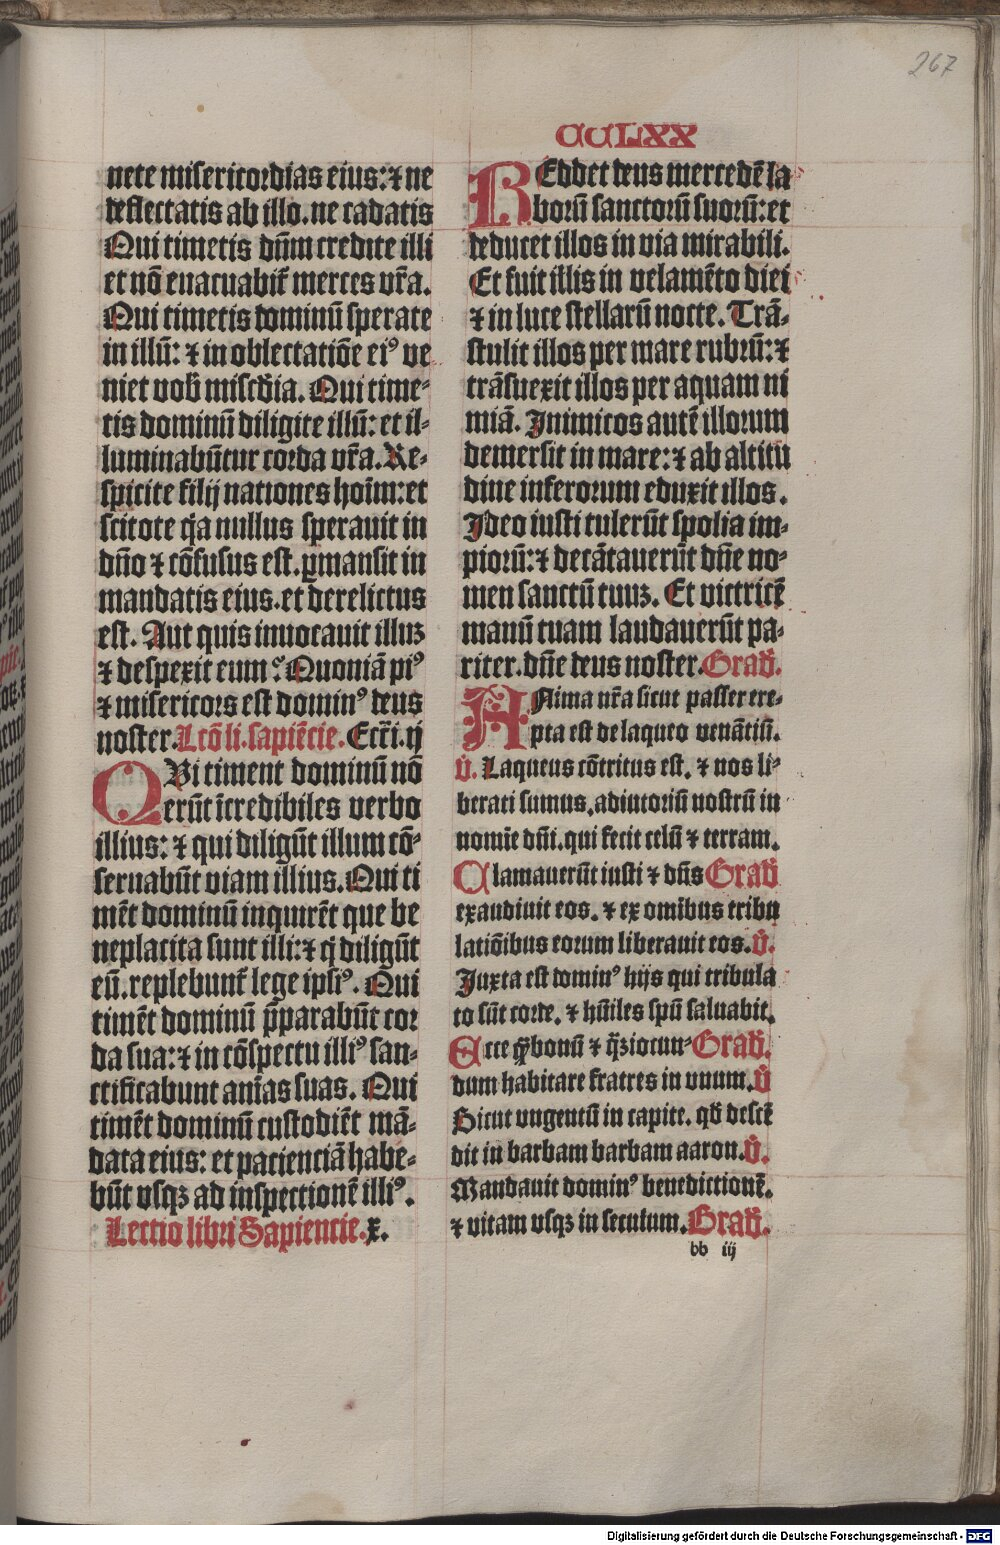 267
CCLXX
nete misericordias eius: ⁊ ne
deflectatis ab illo. ne cadatis
Qui timetis dn̄m credite illi
et nō euacuabit᷑ merces vr̄a.
Qui timetis dominū sperate
in illū: ⁊ in oblectatiōe eiꝰ ve
niet vob̄ misc̄dia. Qui time⸗
tis dominū diligite illū: et il⸗
luminabūtur corda vr̄a. Re⸗
spicite filij nationes hoīm: et
scitote q̇a nullus sperauit in
dn̄o ⁊ cōfusus est. ꝑmansit in
mandatis eius. et derelictus
est. Aut quis inuocauit illuꝫ
⁊ despexit eum? Quoniā piꝰ
⁊ misericors est dominꝰ deus
noster. Lcō li. sapiēcie. Ecc̄i. ij
QVi timent dominū nō
erūt īcredibiles verbo
illius: ⁊ qui diligūt illum cō⸗
seruabūt viam illius. Qui ti
mēt dominū inquirēt que be
neplacita sunt illi: ⁊ q̇ diligūt
eū. replebunt᷑ lege ipsiꝰ. Qui
timēt dominū p̄parabūt cor
da sua: ⁊ in cōspectu illiꝰ san⸗
ctificabunt anīas suas. Qui
timēt dominū custodiēt mā⸗
data eius: et pacienciā habe⸗
būt vsqꝫ ad inspectionē illiꝰ.
Lectio libri Sapiencie. x.
REddet deus mercedē la
borū sanctorū suorū: et
deducet illos in via mirabili.
Et fuit illis in velamēto diei
⁊ in luce stellarū nocte. Trā⸗
stulit illos per mare rubrū: ⁊
trāsuexit illos per aquam ni
miā. Inimicos autē illorum
demersit in mare: ⁊ ab altitu
dine inferorum eduxit illos.
Ideo iusti tulerūt spolia im⸗
piorū: ⁊ decātauerūt dn̄e no⸗
men sanctū tuuꝫ. Et victricē
manū tuam laudauerūt pa⸗
riter. dn̄e deus noster. Grad̄.
ANima nr̄a sicut passer ere⸗
pta est de laqueo venātiū.
v̄. Laqueus cōtritus est. ⁊ nos li⸗
berati sumus. adiutoriū nostrū in
nomīe dn̄i. qui fecit celū ⁊ terram.
Clamauerūt iusti ⁊ dn̄s Grad̄
exaudiuit eos. ⁊ ex omībus tribu
latiōibus eorum liberauit eos. v̄.
Juxta est dominꝰ hijs qui tribula
to sūt corde. ⁊ hūiles spū saluabit.
Ecce q̄ꝫ bonū ⁊ q̄ꝫ iocun⸗ Grad̄.
dum habitare fratres in vnum. v̄
Sicut vngentū in capite. qd̄ descē
dit in barbam barbam aaron. v̄.
Mandauit dominꝰ benedictionē.
⁊ vitam vsqꝫ in seculum. Grad̄.
bb iij
Digitalisierung gefördert durch die Deutsche Forschungsgemeinschaft - DFG